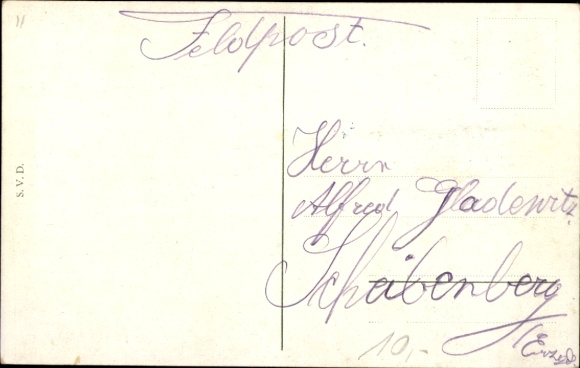 Feldpost.
S. V. D.
Herrn
Alfred Gladewitz
Scheibenberg
10,-